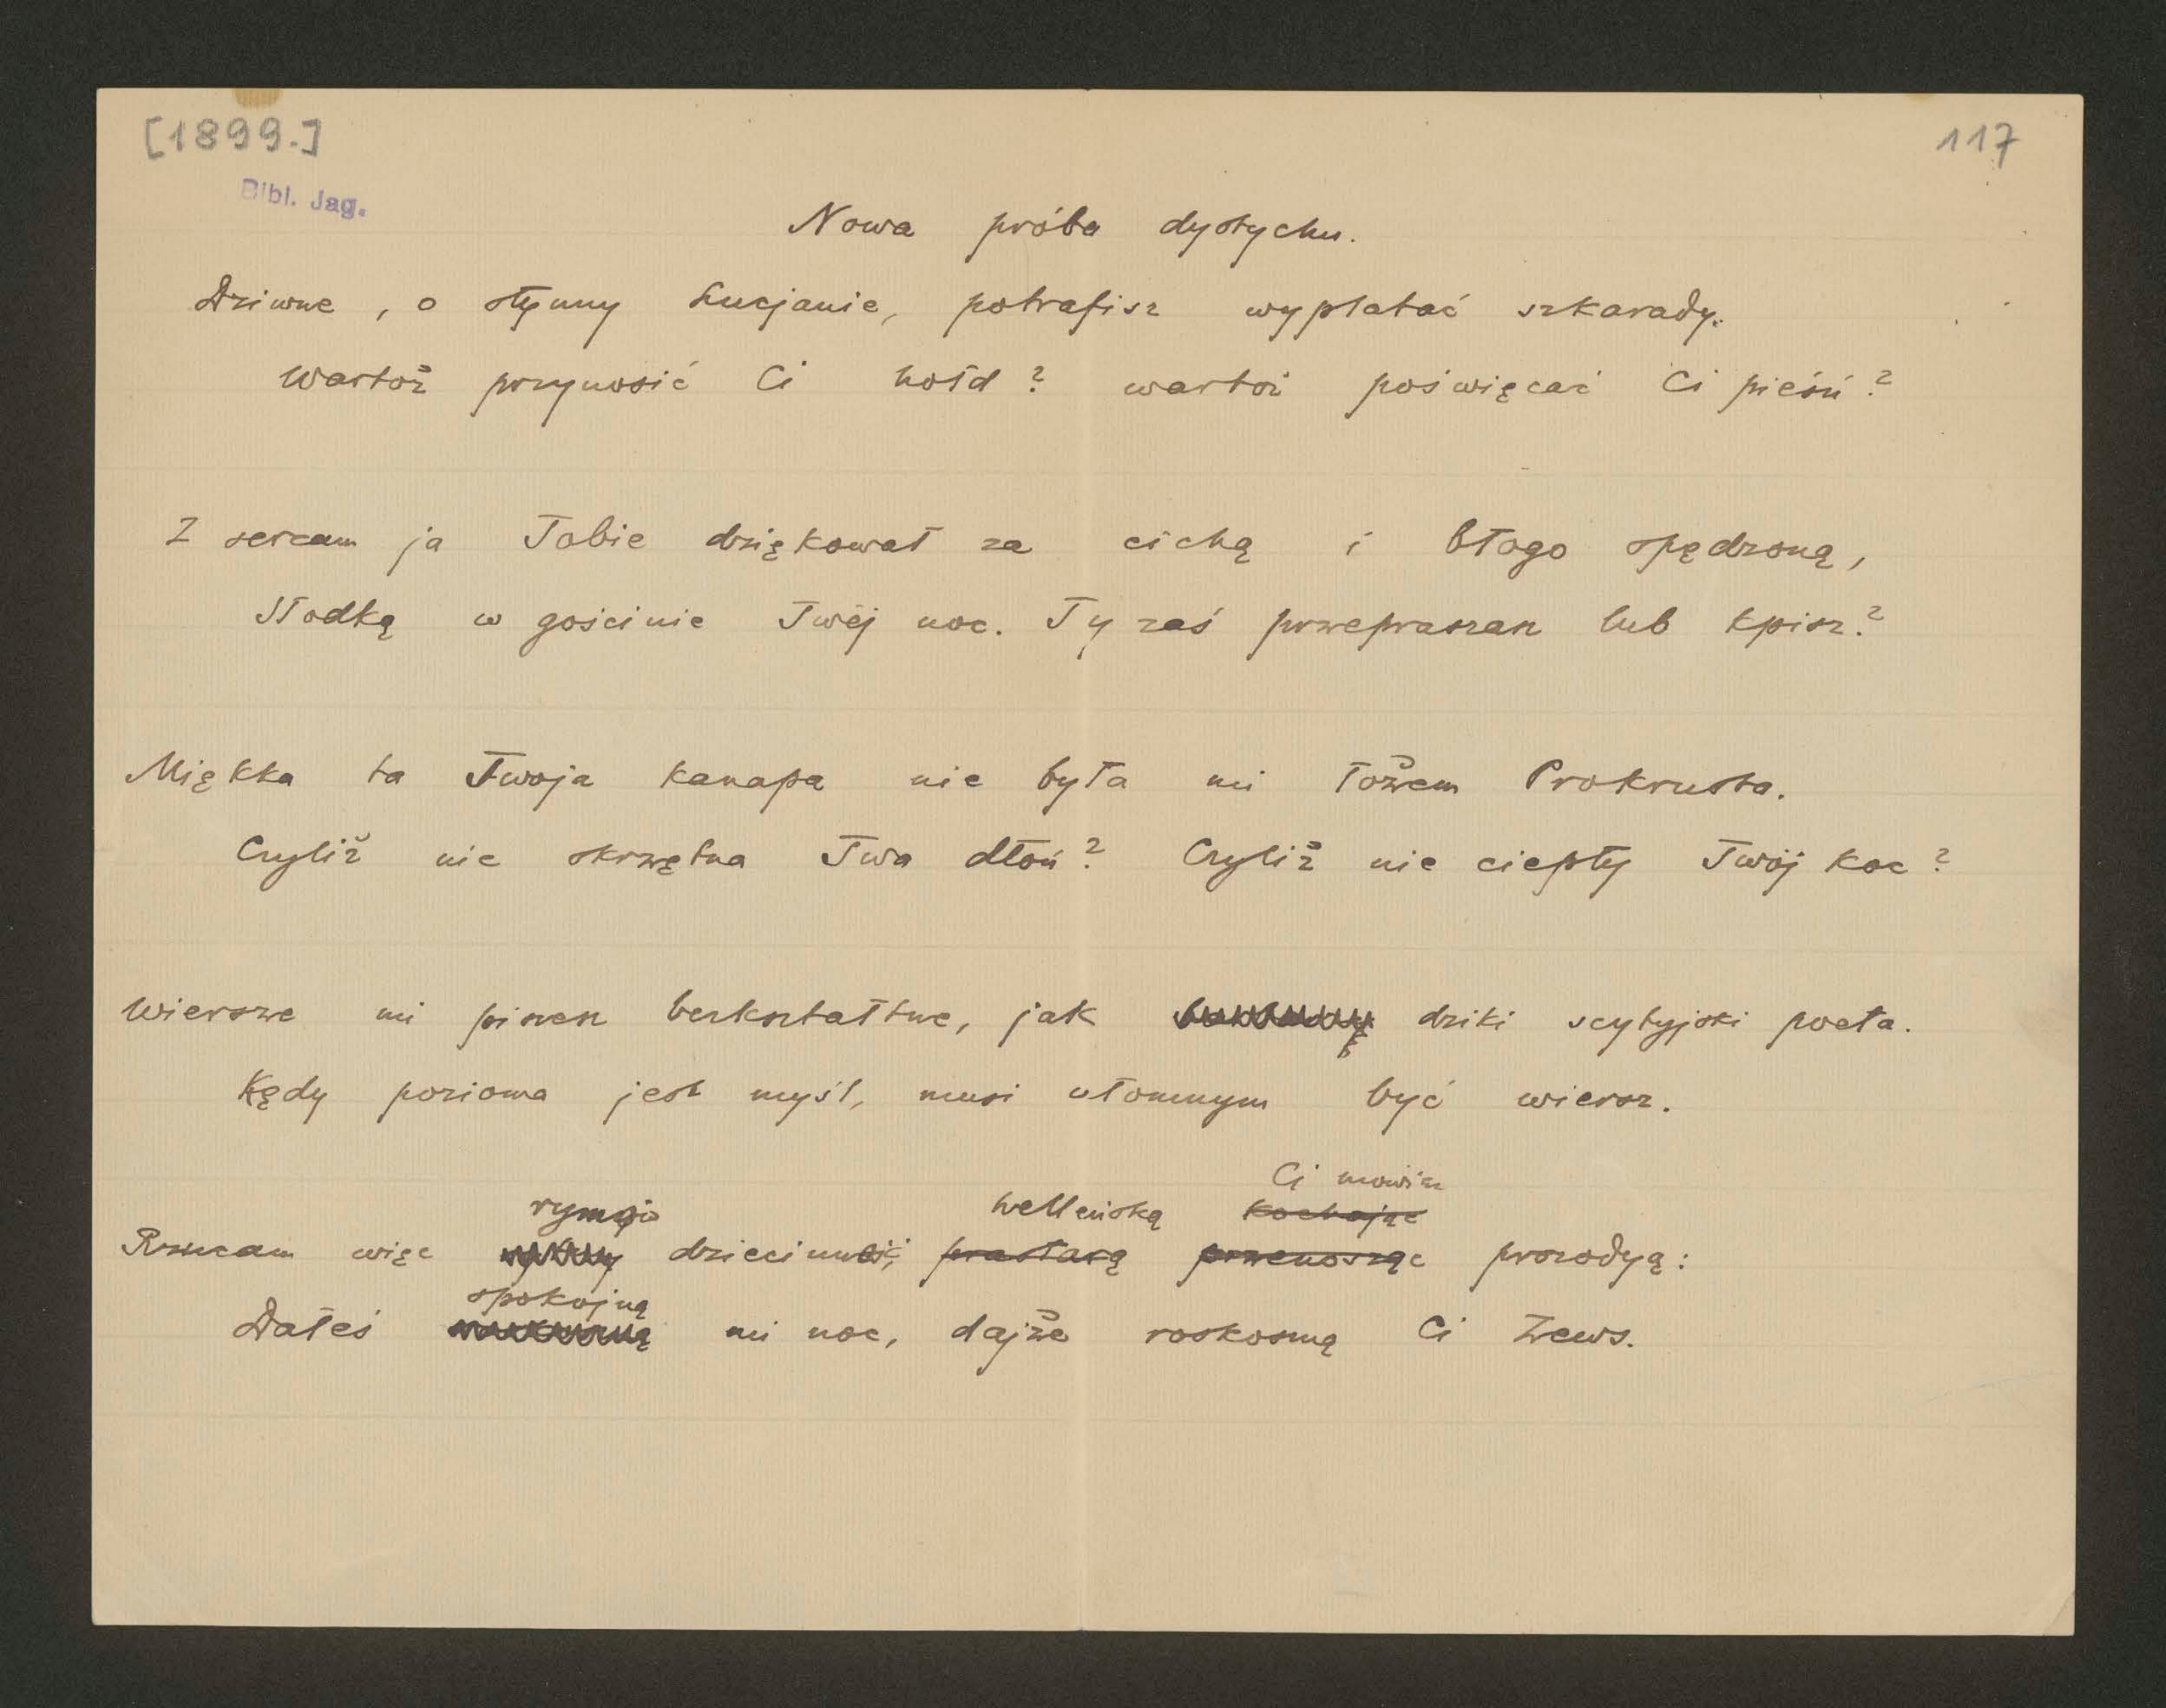 [1899.]
117
Bibl. Jag.
Nowa próba dystychu.
Dziwne, o słynny Lucjanie, potrafisz wyplatać szkarady.
Wartoż przynosić Ci hołd? wartoż poświęcać Ci pieśń?
Z sercam ja Tobie dziękował za cichą i błogo spędzoną,
Słodką w gościnie Twéj noc. Ty zaś przepraszasz lub kpisz?
Miękka ta Twoja kanapa nie była mi łożem Prokrusta.
Czyliż nie skrzętna Twa dłoń? Czyliż nie ciepły Twój koc?
Wiersze mi piszesz bezkształtne, jak dziki scytyjski poeta.
Kędy pozioma jest myśl, musi ułomnym być wiersz.
Ci mówię
helleńską kochając
Rzucam więc dziecinność, prastarą przenosząc prozodyą:
spokojną
Dałeś mi noc, dajże roskoszną Ci Zews.